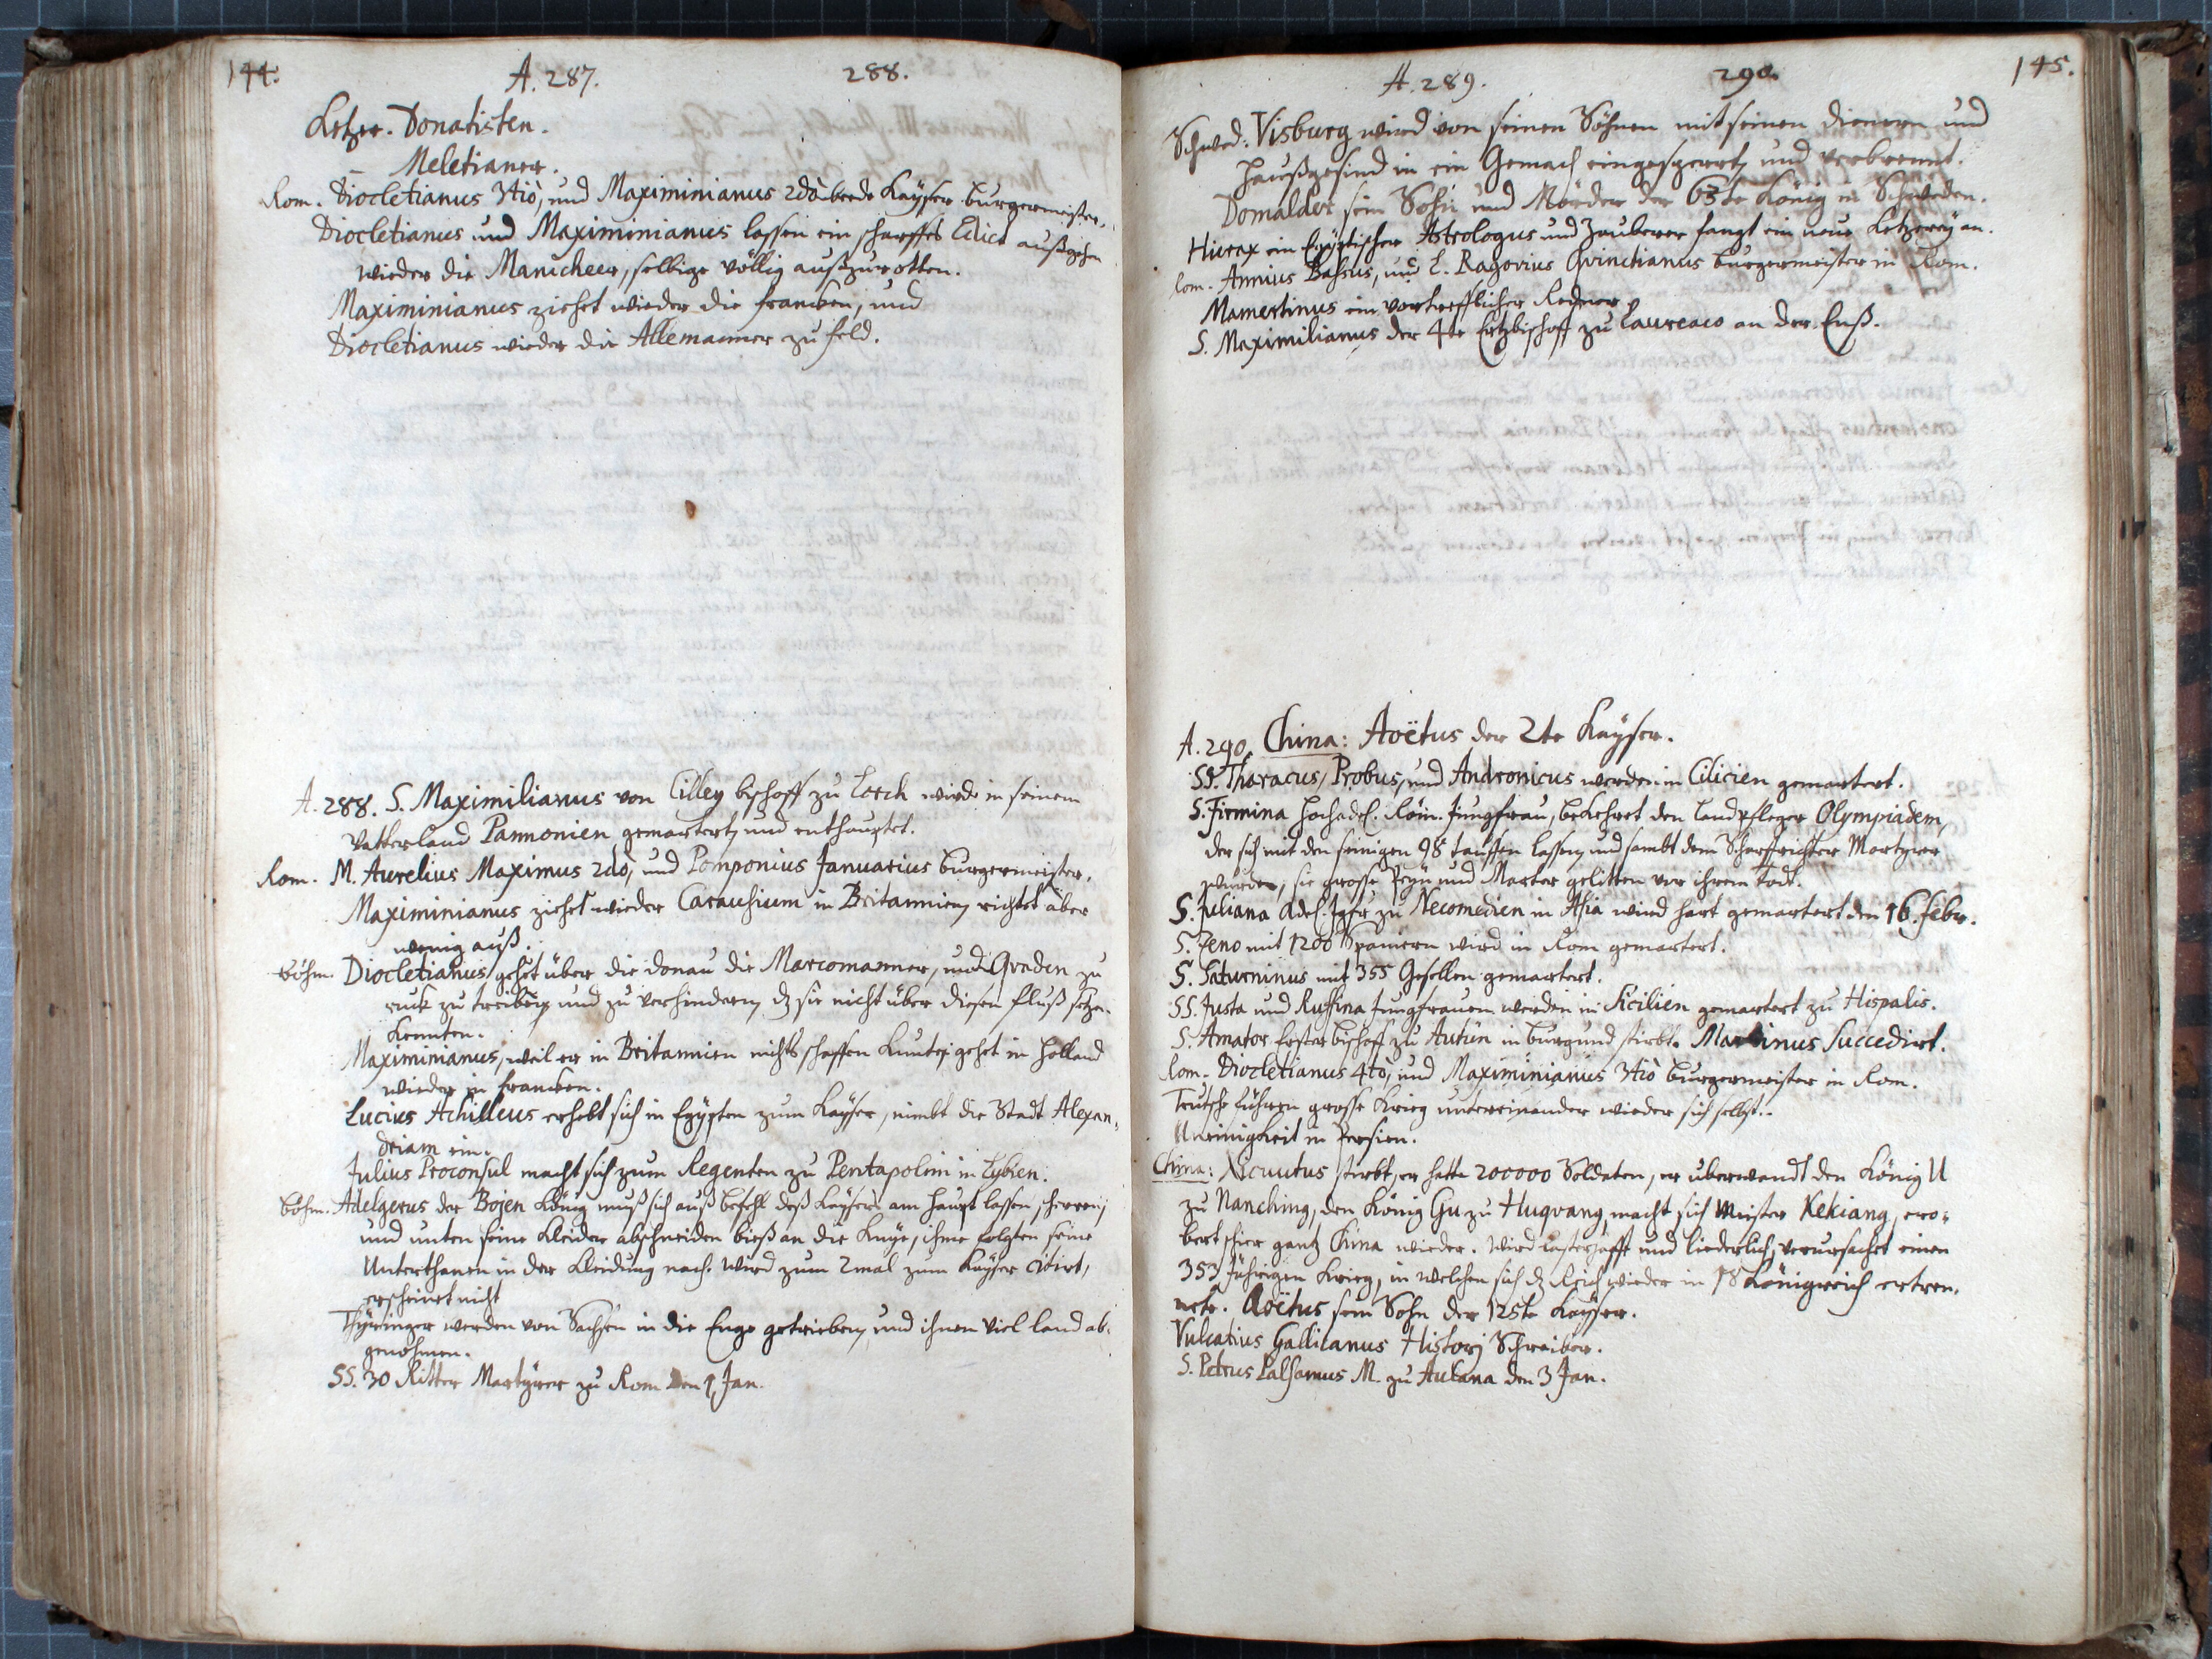 144.
A. 287.
288.
Ketzer. Donatisten.
Meletianer.
Rom. Diocletianus 3tiò, und Maximinianus 2dò beede Kaÿser burgermeister.
Diocletianus und Maximinianus lassen ein scharffes Edict außgehen
wieder die Manicheer, selbige völlig außzurotten.
Maximinianus ziehet wieder die francken, und
Diocletianus wieder die Allemanner zu feld.
A. 288. S. Maximilianus von Cilley bischoff zu Lorch wird in seinem
Vatterland Pannonien gemartert, und enthauptet.
Rom. M. Aurelius Maximus 2dò, und Pomponius Januarius burgermeister.
Maximinianus ziehet wieder Carausium in Britannien, richtet aber
wenig auß.
böhm. Diocletianus gehet über die donau die Marcomanner, und Qvaden zu
ruck zu treiben, und zu verhindern, dz sie nicht über diesen fluß setzen
konnten.
Maximinianus, weil er in Britannien nichts schaffen kunte, gehet in Holland
wieder die francken.
Lucius Achilleus erhebt sich in Egÿpten zum Kaÿser, nimbt die Stadt Alexan,
driam ein.
Julius Proconsul macht sich zum Regenten zu Pentapolim in Lybien.
böhm. Adelgerus der Bojen König muß sich auß befehl deß Kaÿsers am haupt lassen scherren,
und unten seine Kleider abschneiden bieß an die Knÿe, ihme folgten seine
Unterthanen in der Kleidung nach. Wird zum 2mal zum Kaÿser citirt,
erscheinet nicht
Thüringer werden von Sachsen in die Enge getrieben, und ihnen viel land ab,
genohmen.
SS. 30 Ritter Martÿrer zu Rom den 1 Jan.
A. 289.
290.
145.
Schwed: Visburg wird von seinen Söhnen mit seinen dienern und
Haußgesind in ein Gemach eingesperrt, und verbrennt.
Domalder sein Sohn und Mörder der 63te König in Schweden.
Hierax ein Egÿptischer Astrologus und Zauberer fangt ein neue Ketzereÿ an.
Rom. Annius Bassus, und L. Ragovius Qvinctianus burgermeister in Rom.
Mamertinus ein vortrefflicher Redner.
S. Maximilianus der 4te Ertzbischoff zu Laureaco an der Enß.
A. 290. China: Aoëtus der 2te Kaÿser.
SS. Tharacus, Probus, und Andronicus werden in Cilicien gemartert.
S. Firmina hochadel. Röm. Jungfrau, bekehret den Landpfleger Olympiadem,
der sich mit den seinigen 98 tauffen lassen, und sambt dem Scharffrichter Martyrer
wurden, sie grosse Pein und Marter gelitten vor ihrem todt.
S. Juliana Adel. Jgfr. zu Necomedien in Asia wird hart gemartert den 16. febr.
S. Zeno mit 1200 Spaniern wird in Rom gemartert.
S. Saturninus mit 355 Gesellen gemartert.
SS. Justa und Ruffina Jungfrauen werden in Sicilien gemartert zu Hispalis.
S. Amator Erster bischoff zu Autun in burgund stirbt. Martinus succedirt.
Rom. Diocletianus 4tò, und Maximinianus 3tiò burgermeister in Rom.
Teutsche führen grosse Krieg untereinander wieder sich selbst.
Uneinigkeit in Persien.
China: stirbt, er hatte 200000 Soldaten, er uberwandt den König U
zu Nanching, den König Gu zu Huqvang, macht sich Meister Kekiang, ero,
bert schier gantz China wieder. Wird lasterhafft und liederlich, verursachet einen
353 Jährigen Krieg, in welchen sich dz Reich wieder in 18 Königreich
Aoëtus sein Sohn der 125te Kaÿser.
Vulcatius Gallicanus Historj Schreiber.
S. Petrus Balsamus M. zu Aulana den 3 Jan.